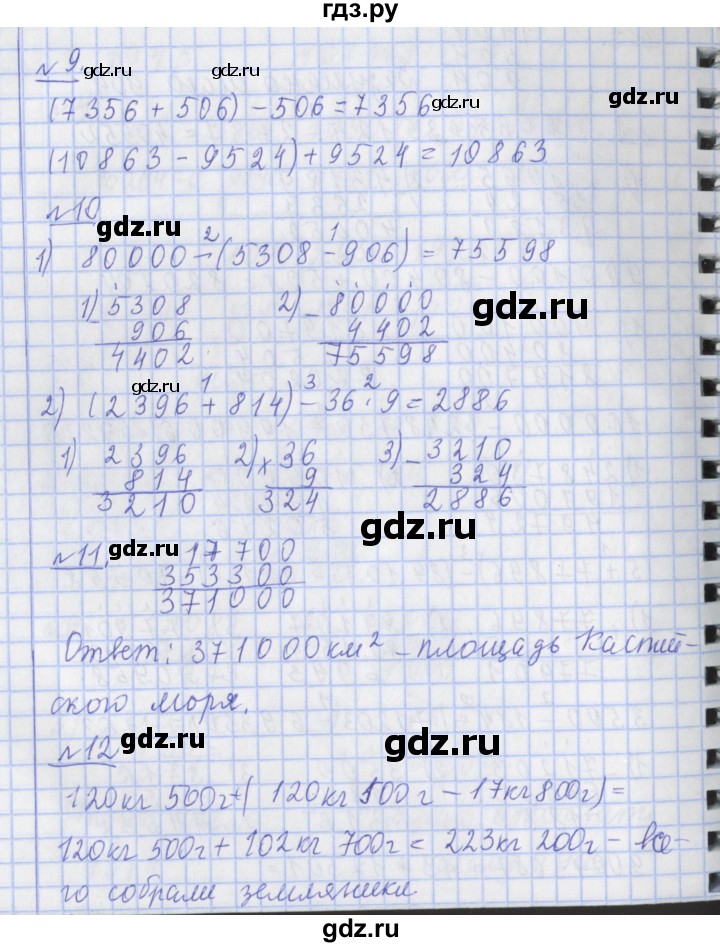 гдз.ру
№ 9. gdz.ru gdz.ru
(7356 + 506) - 506 = 7356 gdz.ru gdz.ru
(10863 - 9524) + 9524 = 10863
№10
gdz.ru gdz.ru
2 1
1) 80000 - (5308 - 906) = 75598
1) - 5308 2) - 80000 gdz.ru
906 4402
4402 75598
gdz.ru
1 3 2
2) (2396 + 814) - 36 · 9 = 2886
1) 2396 2) × 36 3) - 3210
814 9 324
3210 324 2886
gdz.ru
№11. gdz.ru 17700
353300
371000
Ответ: 371000 км² - площадь Каспий-
ского моря.
№12 gdz.ru gdz.ru
120кг 500г + ( 120кг 500г - 17кг 800г) =
120кг 500г + 102кг 700г = 223кг 200г - все-
го собрали земляники
gdz.ru gdz.ru